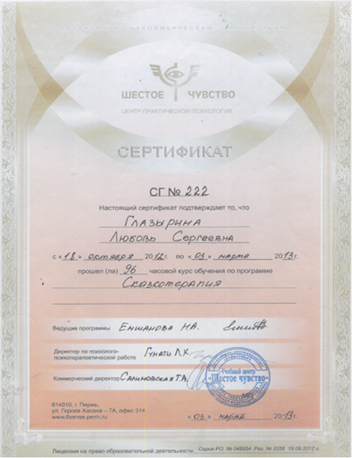 ШЕСТОЕ ЧУВСТВО
ЦЕНТР ПРАКТИЧЕСКОЙ ПСИХОЛОГИИ
СЕРТИФИКАТ
СГ № 222
Настоящий сертификат подтверждает то, что
Глазырина
Любовь Сергеевна
с «18» октября 2012г. по «03» марта 2013г.
прошел (ла) 96 часовой курс обучения по программе
Сказкотерапия
Ведущие программы Еншанова Н.А.
Директор по психолого-
терапевтической работе
Коммерческий директор
Учебный центр
«Шестое чувство»
614010, г. Пермь,
ул. Героев Хасана – 7А, офис 314
«03» марта 2013г.
Лицензия на право образовательной деятельности Серия РО № Рег. № 2012 г.